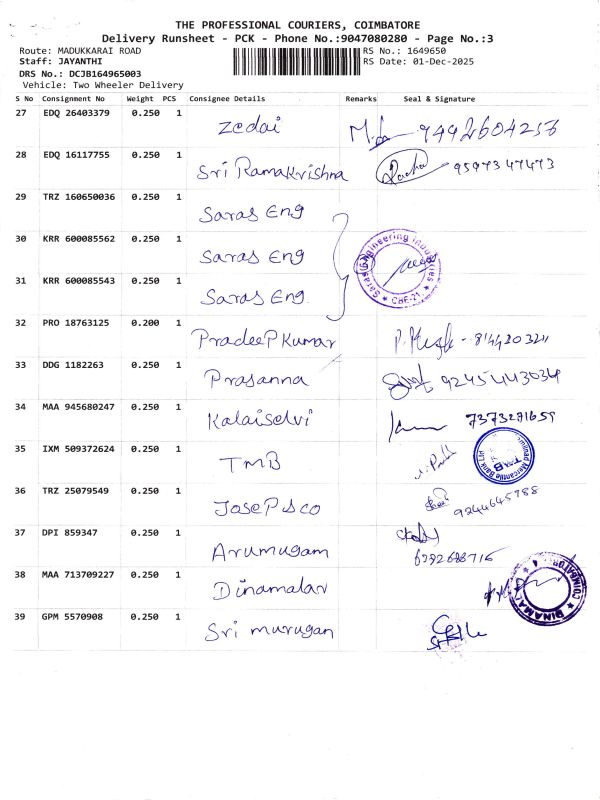 THE PROFESSIONAL COURIERS, COIMBATORE
Delivery Runsheet - PCK - Phone No.:9047080280 - Page No.:3
Route: MADUKKARAI ROAD RS No.: 1649650
Staff: JAYANTHI RS Date: 01-Dec-2025
DRS No.: DCJB164965003
Vehicle: Two Wheeler Delivery
S No Consignment No Weight PCS Consignee Details Remarks Seal & Signature
27 EDQ 26403379 0.250 1 Zedai 9492604256
28 EDQ 16117755 0.250 1 Sri Ramakrishna 9597347473
29 TRZ 160650036 0.250 1 Saras Eng
30 KRR 600085562 0.250 1 Saras Eng
31 KRR 600085543 0.250 1 Saras Eng.
Saras Engineering Industries CBE-21.
32 PRO 18763125 0.200 1 Pradeep Kumar
33 DDG 1182263 0.250 1 Prasanna 9245443034
34 MAA 945680247 0.250 1 Kalaiselvi 7373291659
35 IXM 509372624 0.250 1 TMB
TMB
36 TRZ 25079549 0.250 1 9244645788
37 DPI 859347 0.250 1 Arumugam 6292688716
38 MAA 713709227 0.250 1 Dinamalar
39 GPM 5570908 0.250 1 Sri murugan